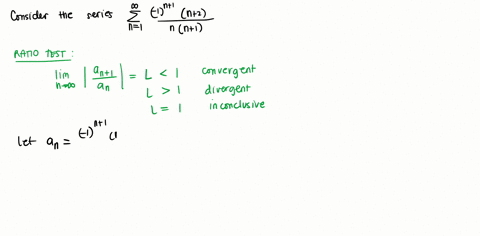 Consider the series ∞ Σ n=1 (-1)^{n+1} (n+2) / n (n+1)
RATIO TEST:
lim n→∞ | a_{n+1} / a_n | = L < 1 convergent
L > 1 divergent
L = 1 inconclusive
let a_n = (-1)^{n+1} (